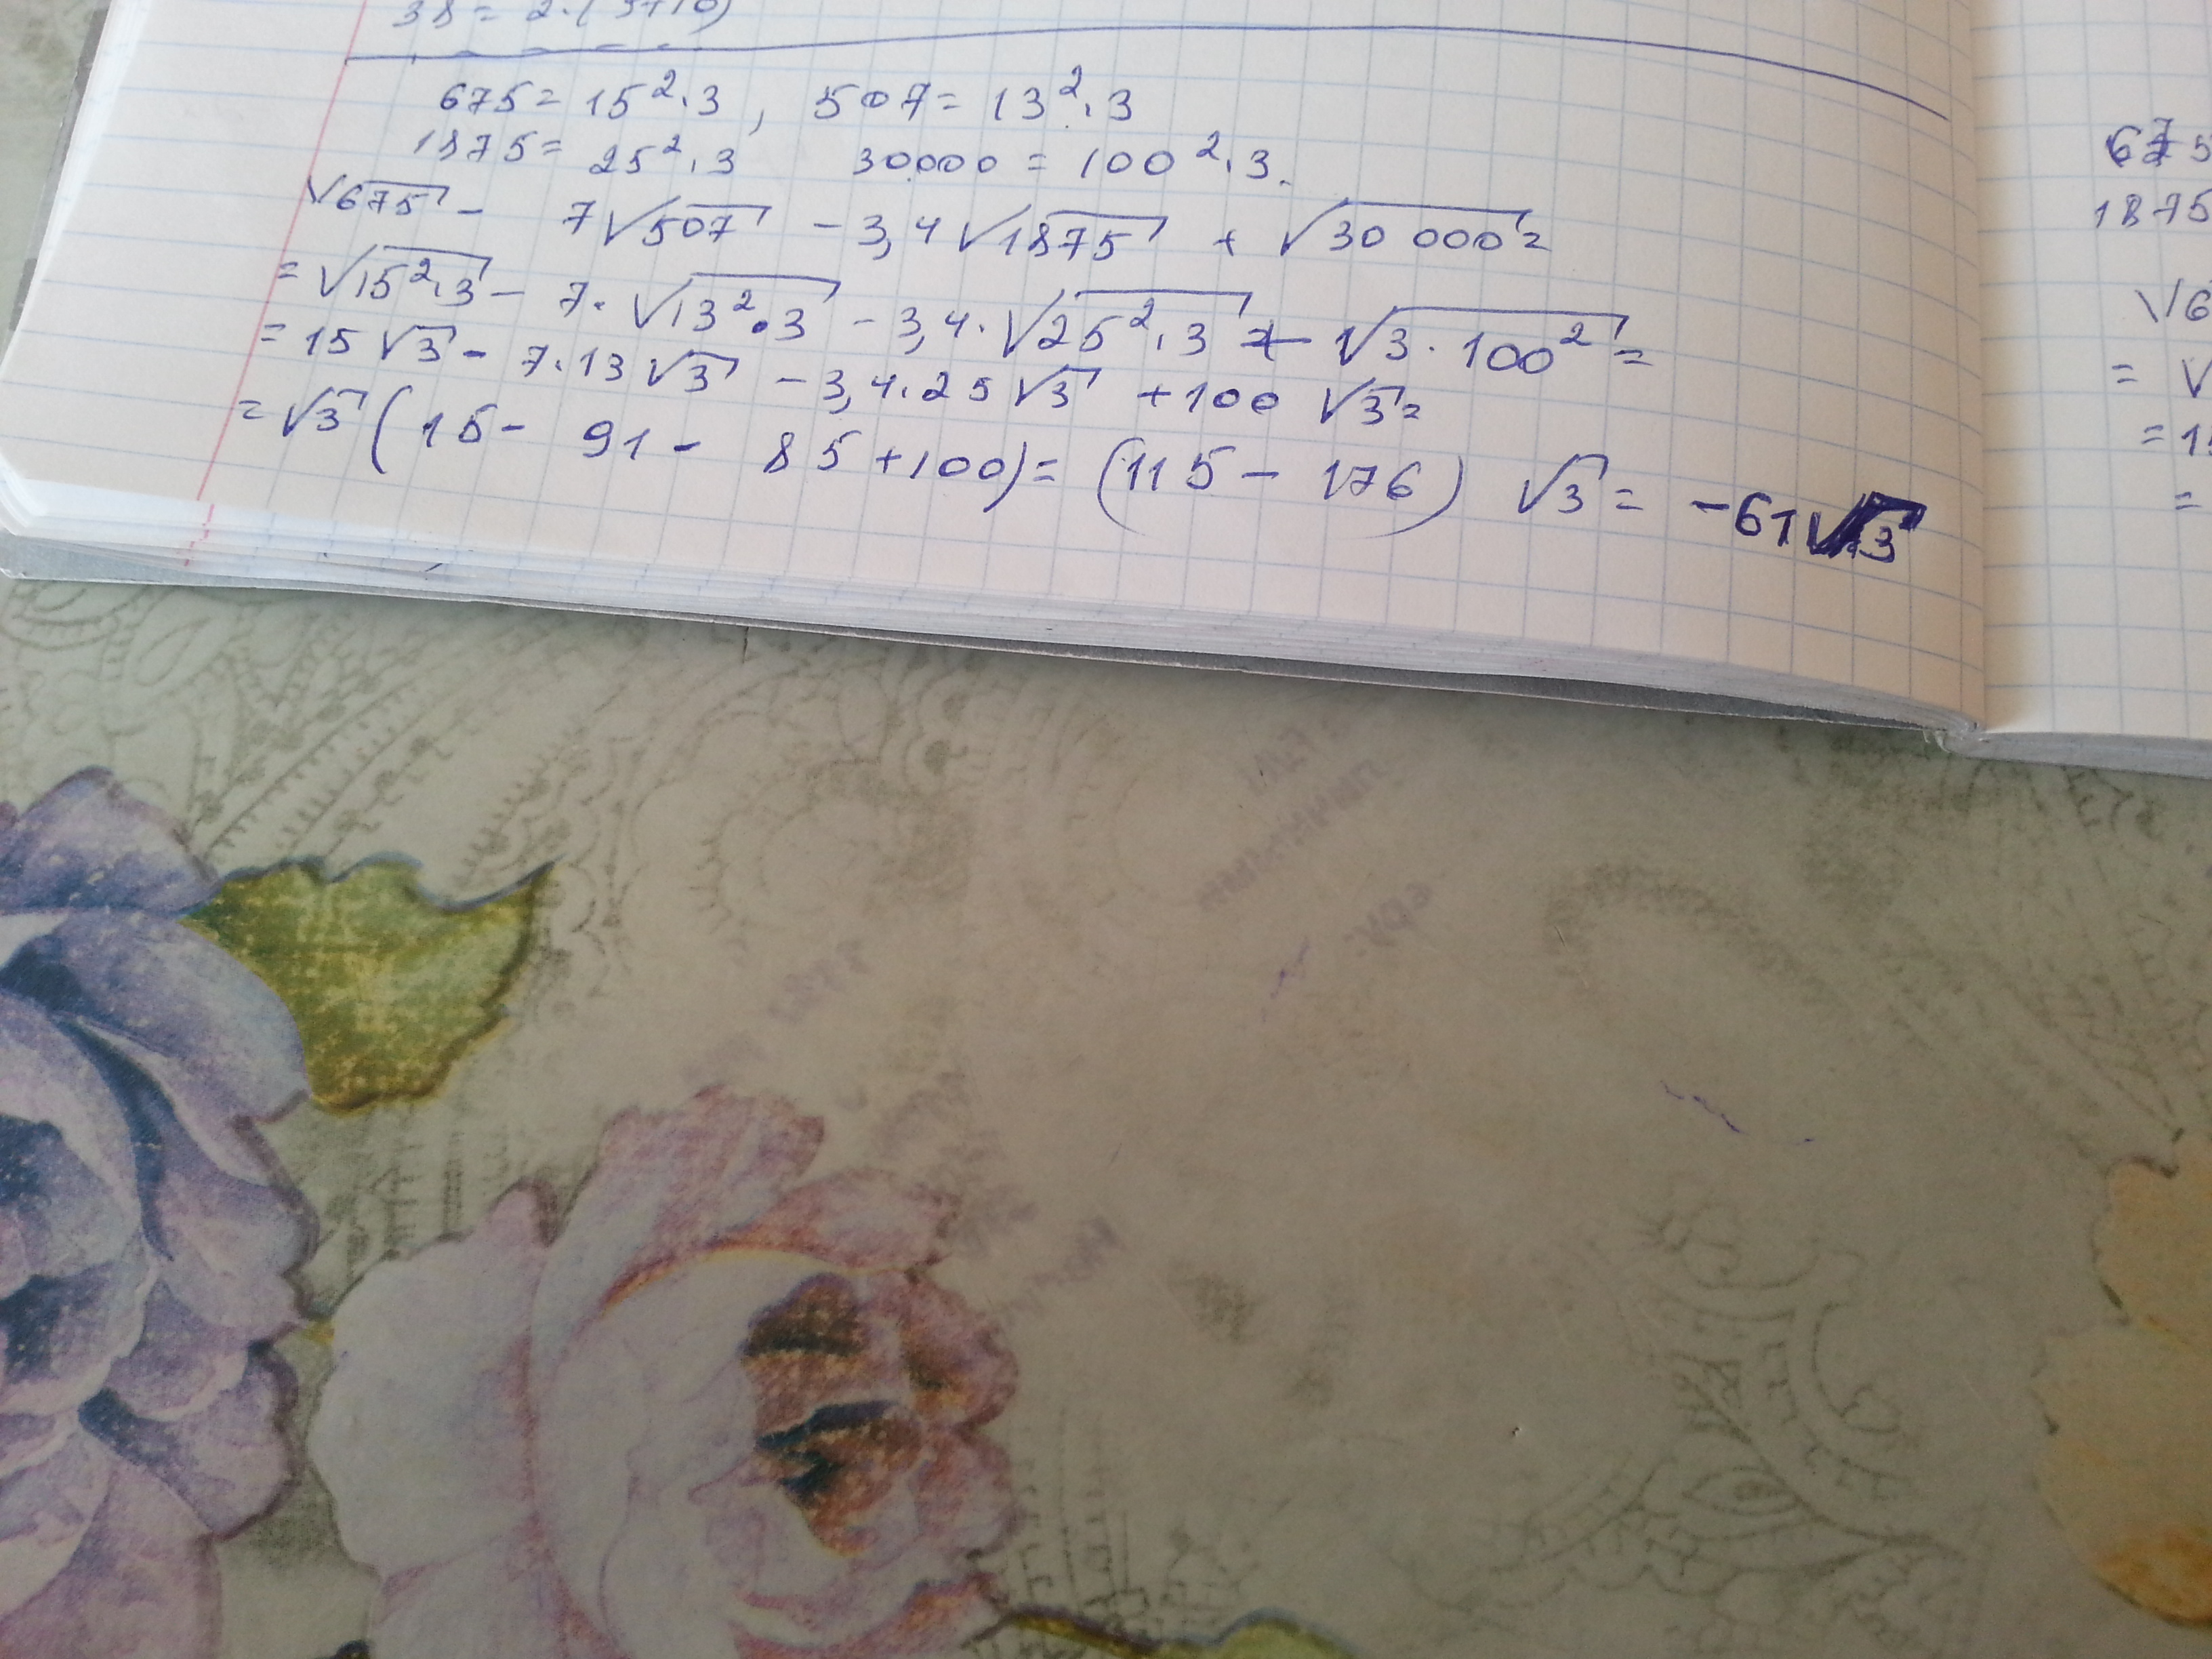 38 = 2.(
675 = 15².3 , 507 = 13².3
1875 = 25².3 30000 = 100².3.
√675 - 7√507 - 3,4√1875 + √30 000 =
= √15².3 - 7.√13².3 - 3,4.√25².3 + √3.100² =
= 15√3 - 7.13√3 - 3,4.25√3 + 100√3 =
= √3 (15 - 91 - 85 + 100) = (115 - 176) √3 = -61√3
675
1875
√6
= √
= 1
=